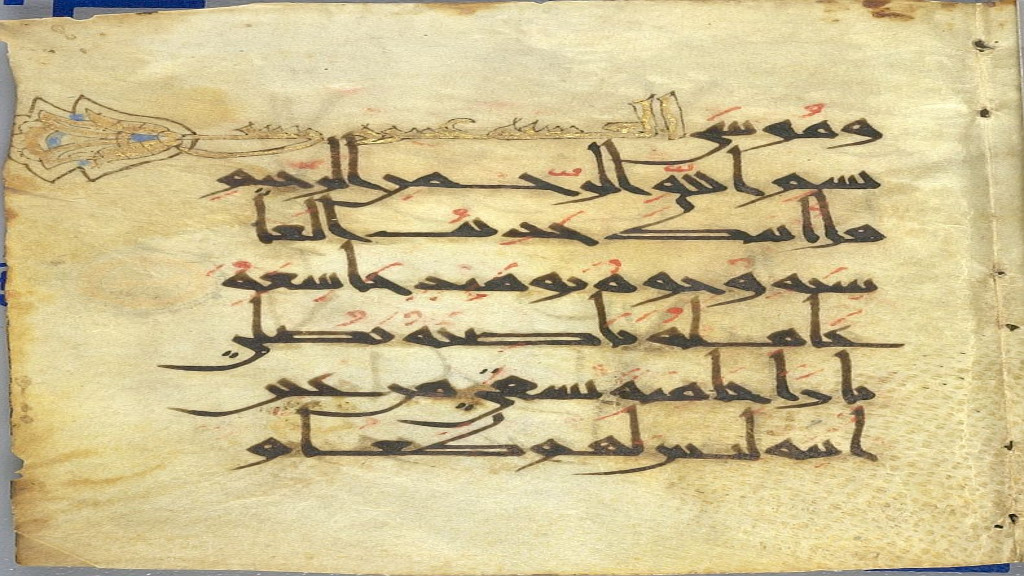 وموسى
بسم الله الرحمن الرحيم
هل اتيك حديث الغا
شية وجوه يومئذ خاشعة
عاملة ناصبة تصلى
نارا حامية تسقى من عين
انية ليس لهم طعام